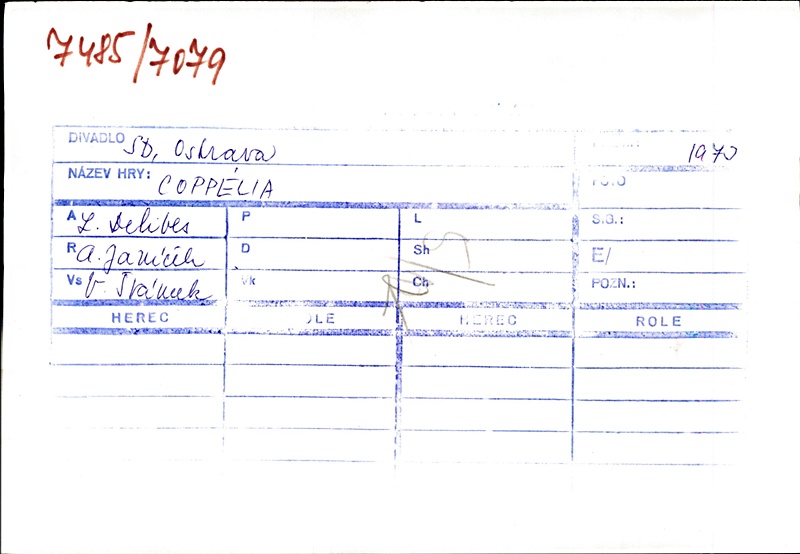 7485/7079
DIVADLO SD, Ostrava 1970
NÁZEV HRY: COPPÉLIA
A L. Delibes P L S.G.:
R A. Janíček D Sh E/
Vs V. Šrámek Vk Ch POZN.:
HEREC HEREC ROLE